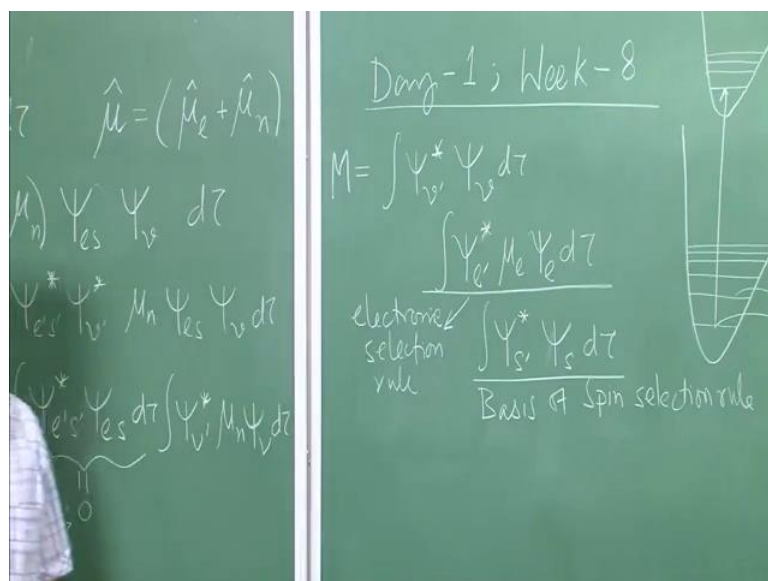 τ μ̂ = (μ̂_e + μ̂_n)
μ_n) Ψ_es Ψ_v dτ
Ψ*_e's' Ψ*_v' μ_n Ψ_es Ψ_v dτ
∫Ψ*_e's' Ψ_es dτ ∫Ψ*_v' μ_n Ψ_v dτ
0
Day-1 ; Week-8
M = ∫ Ψ*_v' Ψ_v dτ
∫Ψ*_e' μ_e Ψ_e dτ
electronic
selection
rule
∫Ψ*_s' Ψ_s dτ
Basis of Spin selection rule